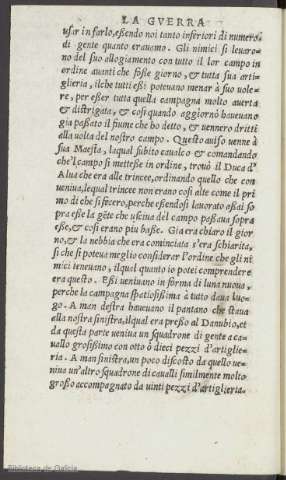 LA GVERRA
usar in farlo, eßendo noi tanto inferiori di numero
di gente quanto erauamo. Gli nimici si leuaro-
no del suo allogiamento con tutto il lor campo in
ordine auanti che foße giorno, & tutta sua arti-
glieria, ilche tutti eßi poteuano menar à suo uole-
re, per eßer tutta quella campagna molto aperta
& distrigata, & cosi quando aggiornò haueuano
gia paßato il fiume che ho detto, & uennero dritti
alla uolta del nostro campo. Questo auiso uenne à
sua Maestà, laqual subito caualcò & comandando
che'l campo si metteße in ordine, trouò il Duca d'
Alua che era alle trincee, ordinando quello che con
ueniua, lequal trincee non erano cosi alte come il pri
mo dì che si fecero, perche eßendosi lauorato aßai so
pra eße la gēte che usciua del campo paßaua sopra
eße, & cosi erano piu baße. Gia era chiaro il gior
no, & la nebbia che era cominciata s'era schiarita,
si che si poteua meglio considerar l'ordine che gli ni
mici teneuano, il qual quanto io potei comprendere
era questo. Eßi ueniuano in forma di luna nuoua,
perche la campagna spatiosißima à tutto daua luo-
go. A man destra haueuano il pantano che staua
alla nostra sinistra, ilqual era preßo al Danubio, et
da questa parte ueniua un squadrone di gente a ca-
uallo großißimo con otto ò dieci pezzi d'artiglie-
ria. A man sinistra, un poco discosto da quello ue-
niua un'altro squadrone di caualli similmente molto
großo accompagnato da uinti pezzi d'artiglieria.
Biblioteca de Galicia